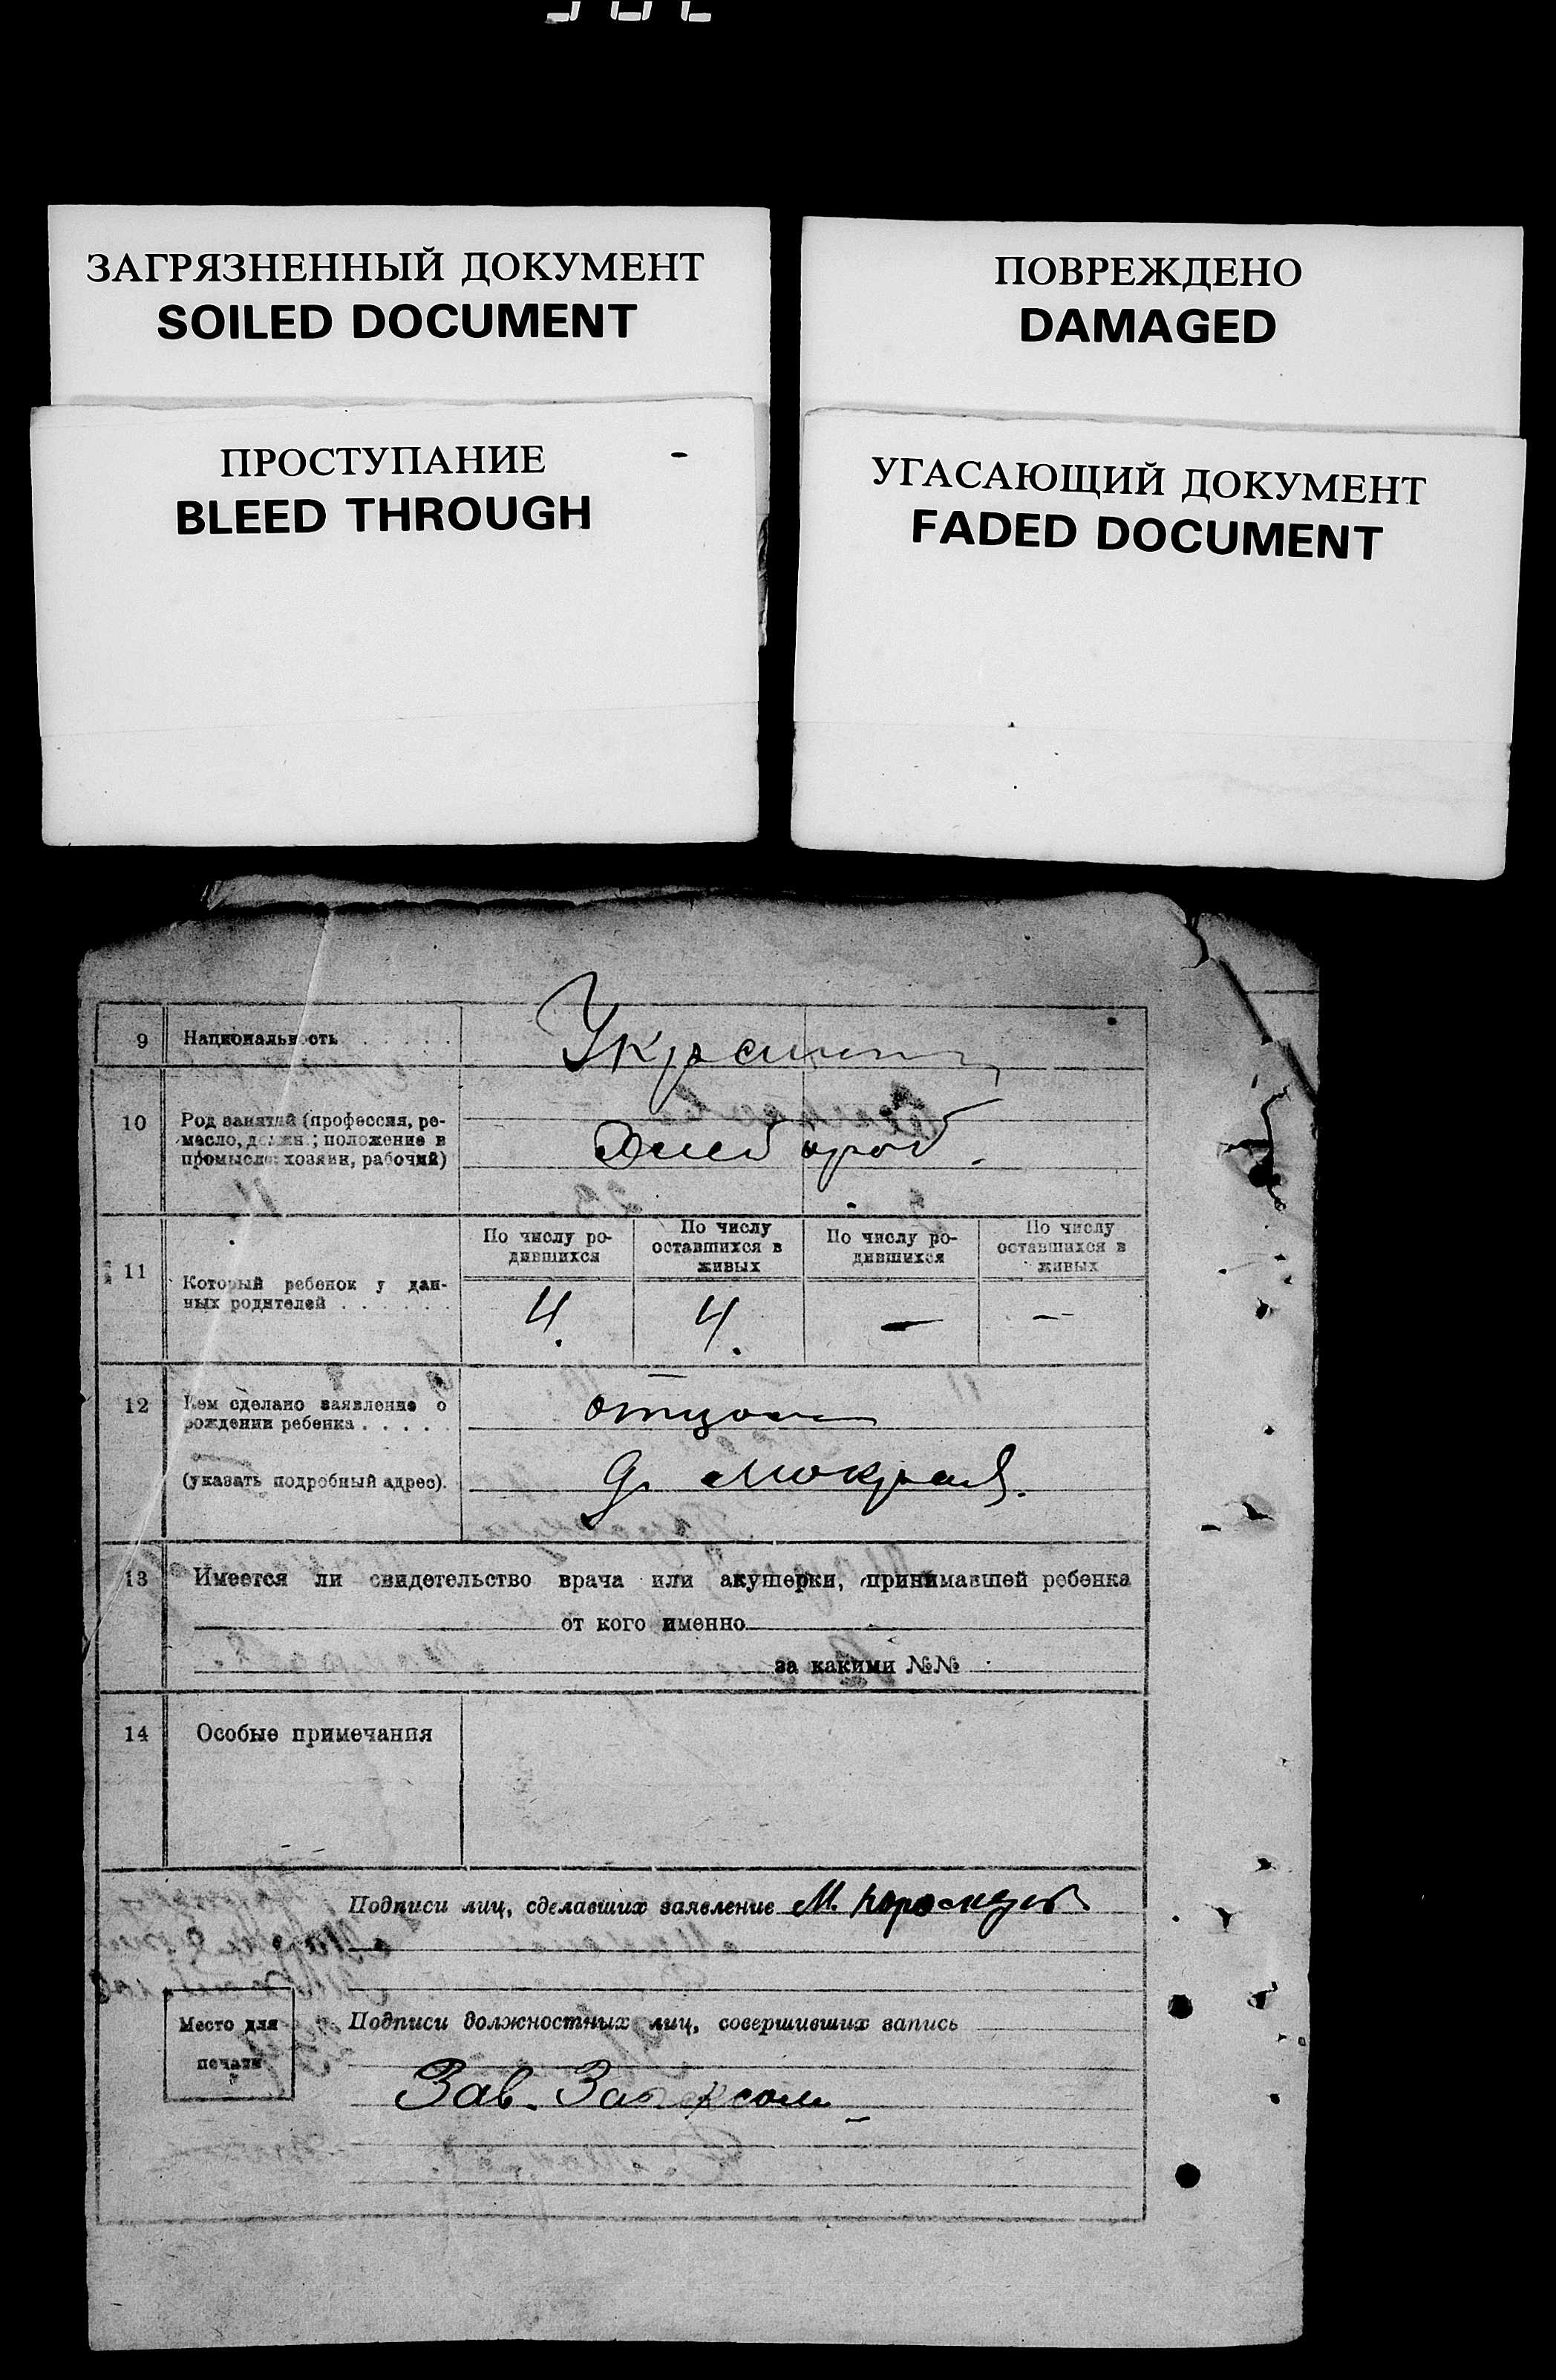 ЗАГРЯЗНЕННЫЙ ДОКУМЕНТ
SOILED DOCUMENT
ПОВРЕЖДЕНО
DAMAGED
ПРОСТУПАНИЕ
BLEED THROUGH
УГАСАЮЩИЙ ДОКУМЕНТ
FADED DOCUMENT
9 Национальность . . . . .
10 Род занятий (профессия, ре-
месло, должн.; положение в
промысле: хозяин, рабочий)
Хлебороб.
11 Который ребенок у дан-
ных родителей . . . . . .
По числу ро-
дившихся
По числу
оставшихся в
живых
По числу ро-
дившихся
По числу
оставшихся в
живых
4. 4. — —
12 Кем сделано заявление о
рождении ребенка . . . . .
отцом
(указать подробный адрес).
д. Мокрая.
13 Имеется ли свидетельство врача или акушерки, принимавшей ребенка
от кого именно
за какими №№
14 Особые примечания
Подписи лиц, сделавших заявление М.
Место для
печати
Подписи должностных лиц, совершивших запись
Зав. Загсом